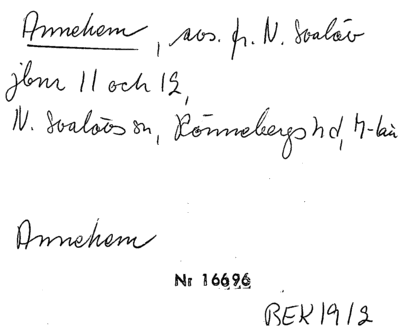 Annehem, avs. fr. N. Svalöv
jbnr 11 och 12,
N. Svalövs sn, Rönnebergs hd, M-län
Annehem
Nr 16696
BEK 19/2